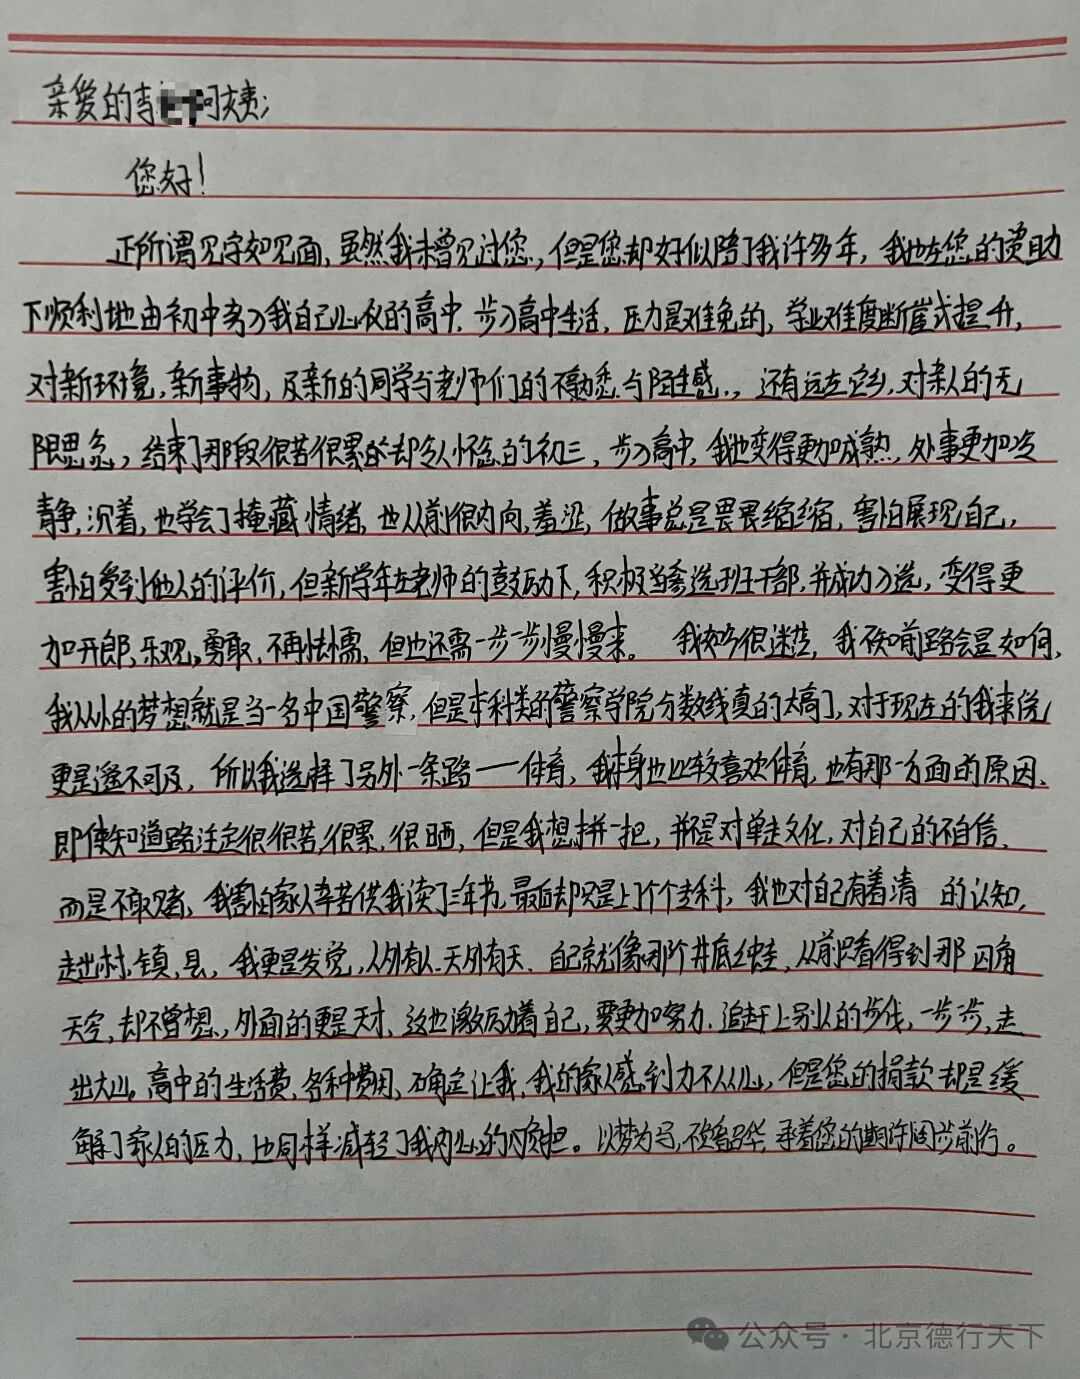 亲爱的李阿姨:
您好!
正所谓见字如见面,虽然我未曾见过您,但是您却好似陪了我许多年,我也在您的资助
下顺利地由初中考入我自己心仪的高中.步入高中生活,压力是难免的,学业难度断崖式提升,
对新环境,新事物,及新的同学与老师们的不熟悉与陌生感.,还有远在它乡,对亲人的无
限思念,结束了那段很苦很累的却令人怀念的初三,步入高中,我也变得更加成熟,处事更加冷
静,沉着,也学会了掩藏情绪,也从前很内向,羞涩,做事总是畏畏缩缩,害怕展现自己,
害怕受到他人的评价,但新学年在老师的鼓励下,积极参选班干部,并成功入选,变得更
加开朗,乐观,勇敢,不再怯懦,但也还需一步一步慢慢来。 我如今很迷茫,我不知前路会是如何,
我从小的梦想就是当一名中国警察,但是本科类的警察学院分数线真的太高了,对于现在的我来说
更是遥不可及,所以我选择了另外一条路——体育,我本身也比较喜欢体育,也有那一方面的原因.
即使知道路注定很很苦,很累,很晒,但是我想拼一把,并不是对单走文化,对自己的不自信,
而是不敢赌,我害怕家人辛苦供我读了三年书,最后却只是上了个专科,我也对自己有着清 的认知,
走出村,镇,县,我更是发觉,人外有人.天外有天.自己就像那个井底之蛙,从前只看得到那四角
天空,却不曾想,外面的更是天才,这也激励着自己,要更加努力.追赶上别人的步伐,一步一步,走
出大山。高中的生活费,各种费用,不确定让我,我的家人感到力不从心,但是您的捐款却是缓
解了家人的压力,也同样减轻了我内心的负担。以梦为马,不负韶华,乘着您的期许阔步前行。
公众号·北京德行天下